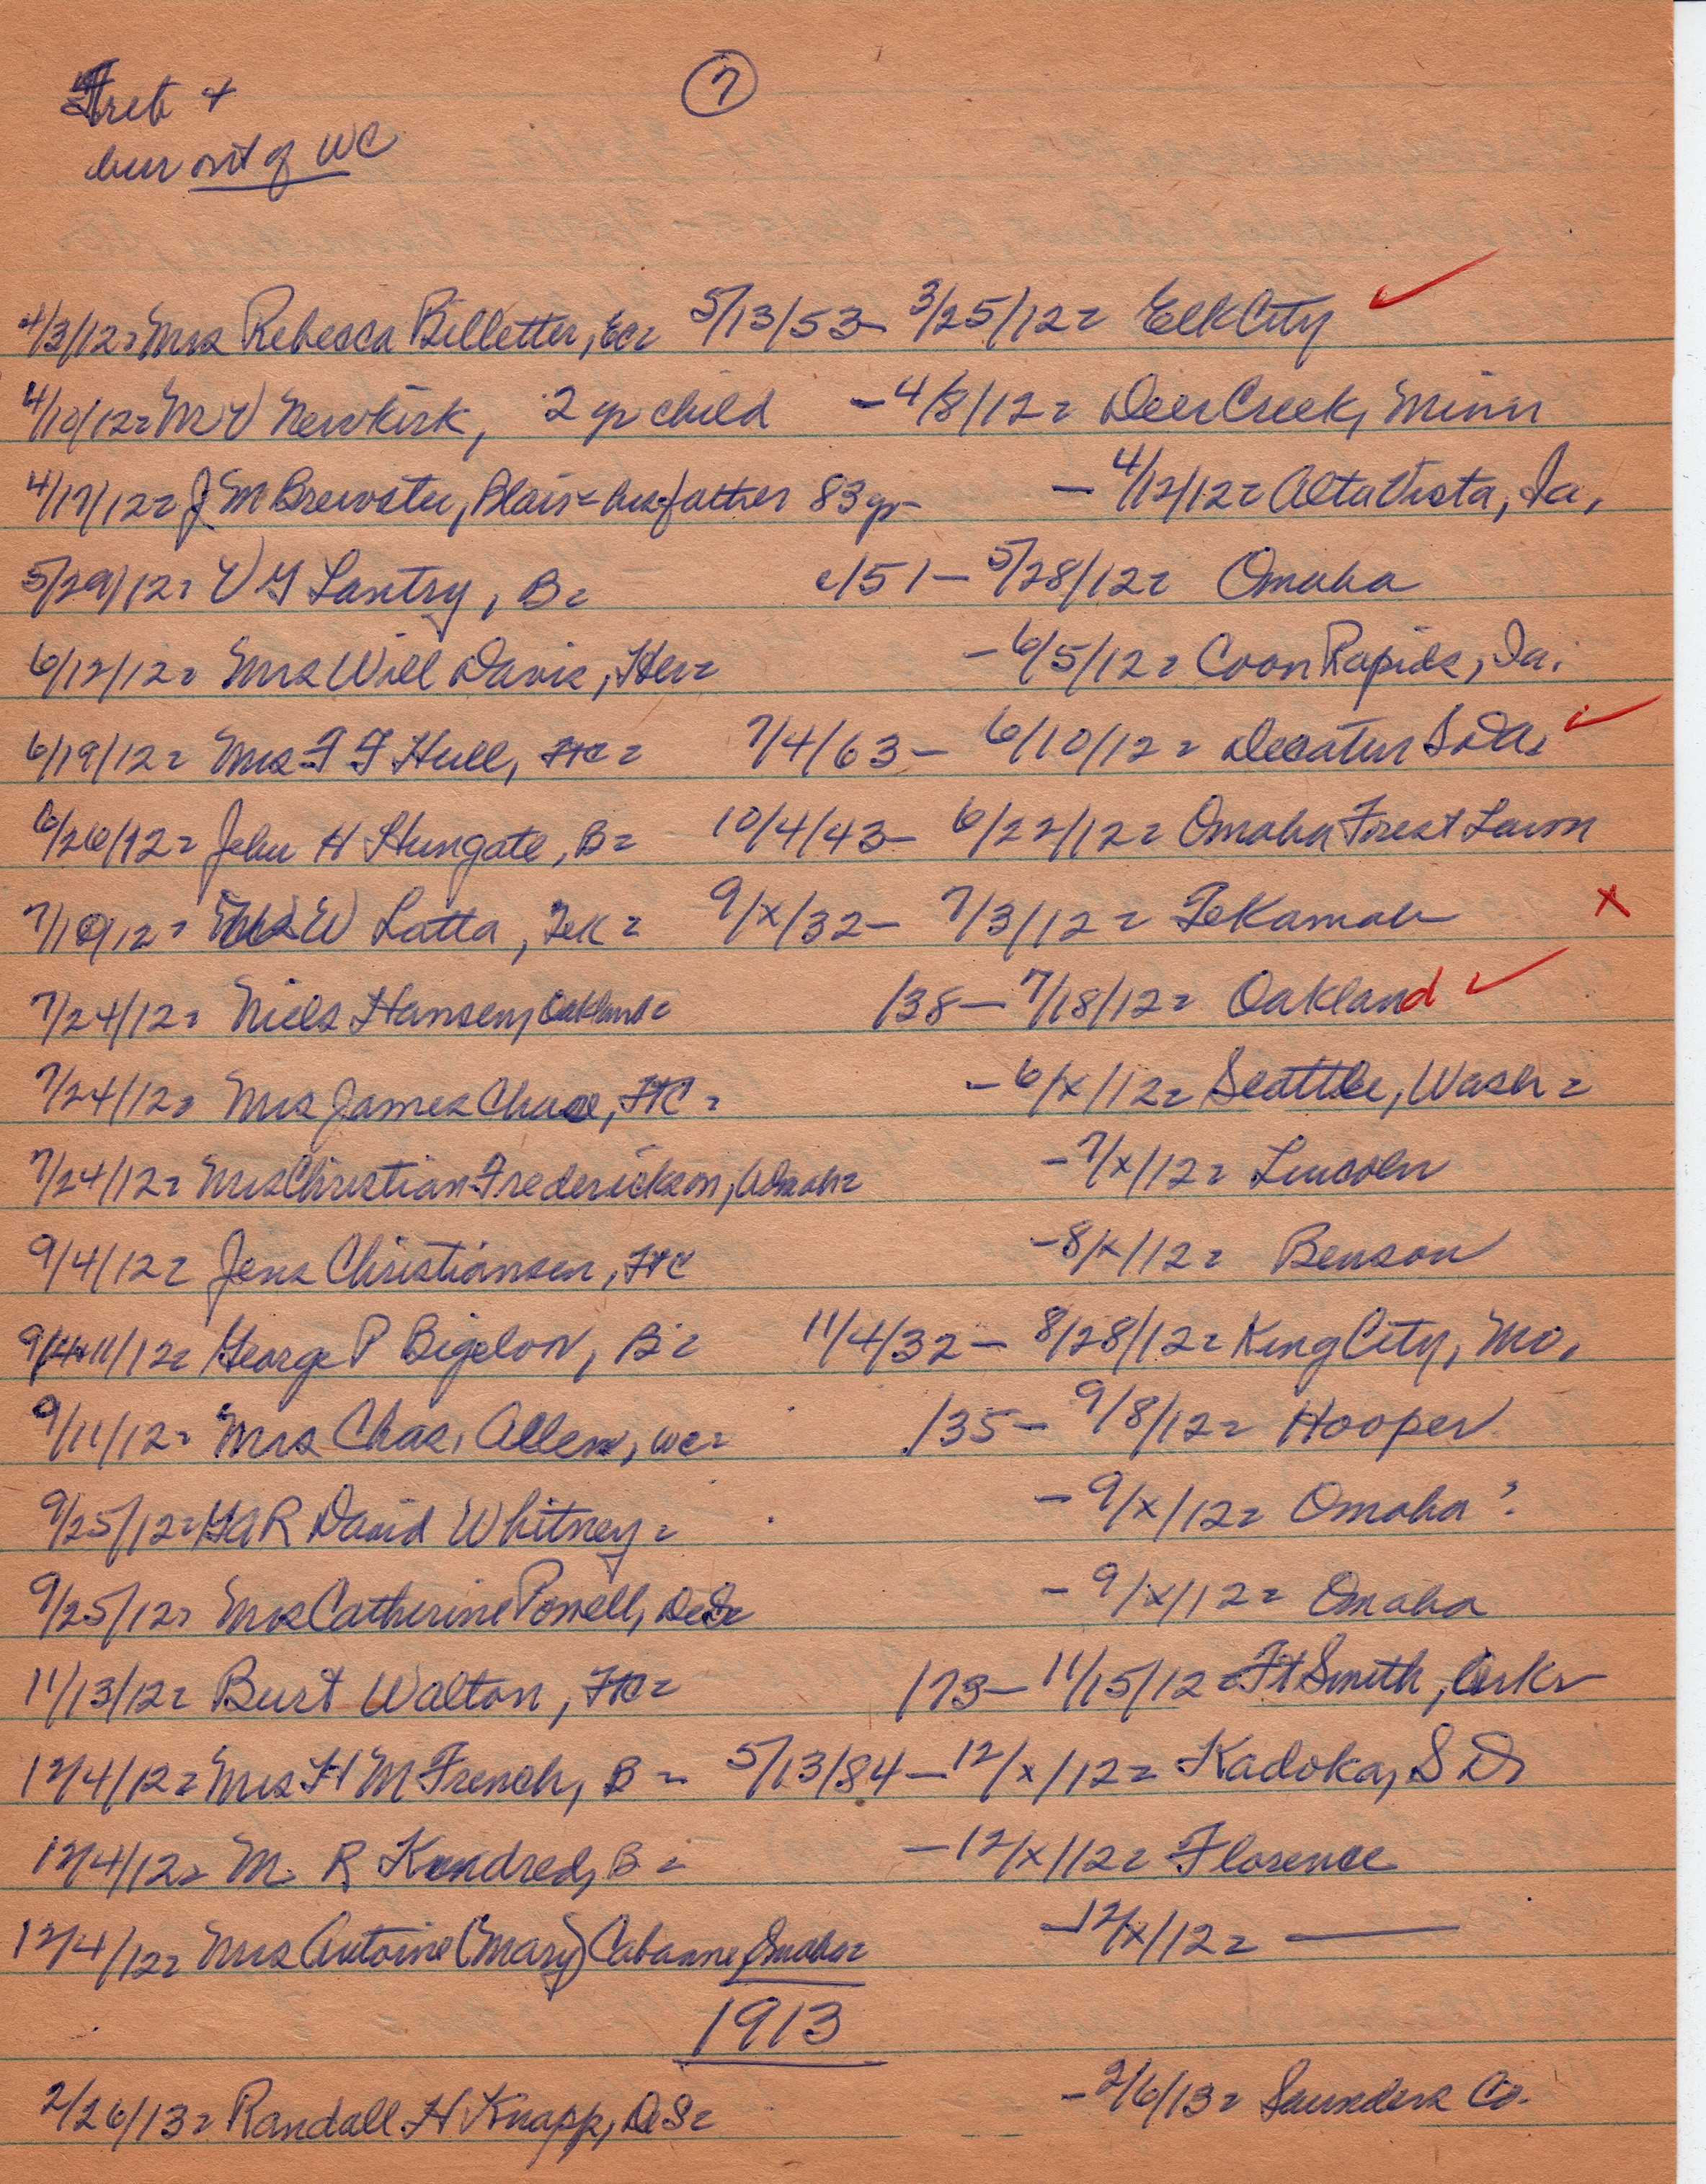 7
Trib +
bur out of WC
4/3/12= Mrs Rebecca Billetter, EC= 5/13/53- 3/25/12= Elk City ✓
4/10/12= M V Newkirk, 2 yr child - 4/8/12= Deer Creek, Minn
4/17/12= J M Brewster, Blair= his father 83 yr- - 4/12/12= Alta Vista, Ia,
5/29/12= V G Lantry, B= c/51- 5/28/12= Omaha
6/12/12= Mrs Will Davis, Her= - 6/5/12= Coon Rapids, Ia.
6/19/12= Mrs F F Hull, FtC= 7/4/63- 6/10/12= Decatur ✓
6/26/12= John H Hungate, B= 10/4/43- 6/22/12= Omaha Forest Lawn
7/10/12= W Latta, Tek= 9/x/32- 7/3/12= Tekamah x
7/24/12= Niels Hansen, Oakland= /38- 7/18/12= Oakland ✓
7/24/12= Mrs James Chase, FtC= - 6/x/12= Seattle, Wash=
7/24/12= Mrs Christian Frederickson, Omaha= - 7/x/12= Lincoln
9/4/12= Jens Christiansen, FtC - 8/x/12= Benson
9/4+11/12= George P Bigelow, B= 11/4/32- 8/28/12= King City, Mo,
9/11/12= Mrs Chas. Allen, WC= /35- 9/8/12= Hooper
9/25/12= GAR David Whitney= - 9/x/12= Omaha ?
9/25/12= Mrs Catherine Powell, DeS= - 9/x/12= Omaha
11/13/12= Burt Walton, FtC= /73- 11/15/12= Ft Smith, Ark
12/4/12= Mrs H M French, B= 5/13/84- 12/x/12= Kadoka, S D
12/4/12= M. R Kendred, B= - 12/x/12= Florence
12/4/12= Mrs Antoine (Mary) Cabanne, Omaha= - 12/x/12= ———
1913
2/26/13= Randall H Knapp, DeS= - 2/6/13= Saunders Co.